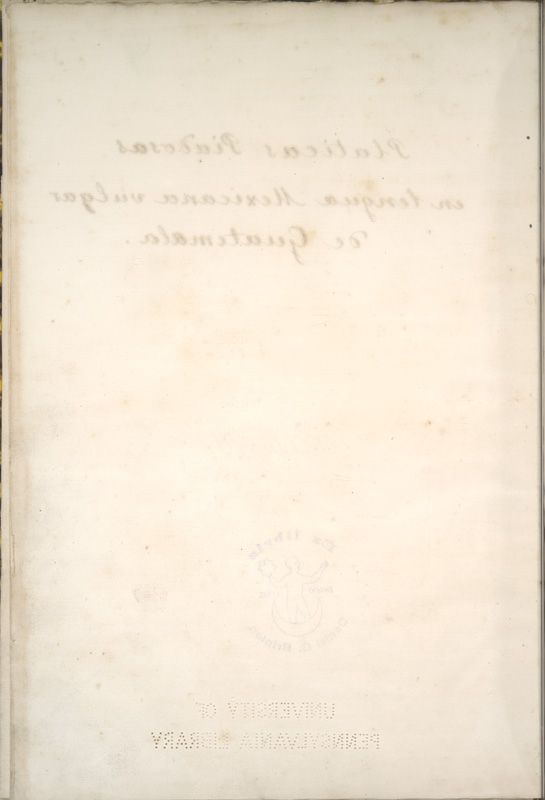 Platicas Piadosas
en lengua Mexicana vulgar
de Guatemala.
Ex libris
Daniel G. Brinton
UNIVERSITY OF
PENNSYLVANIA LIBRARY